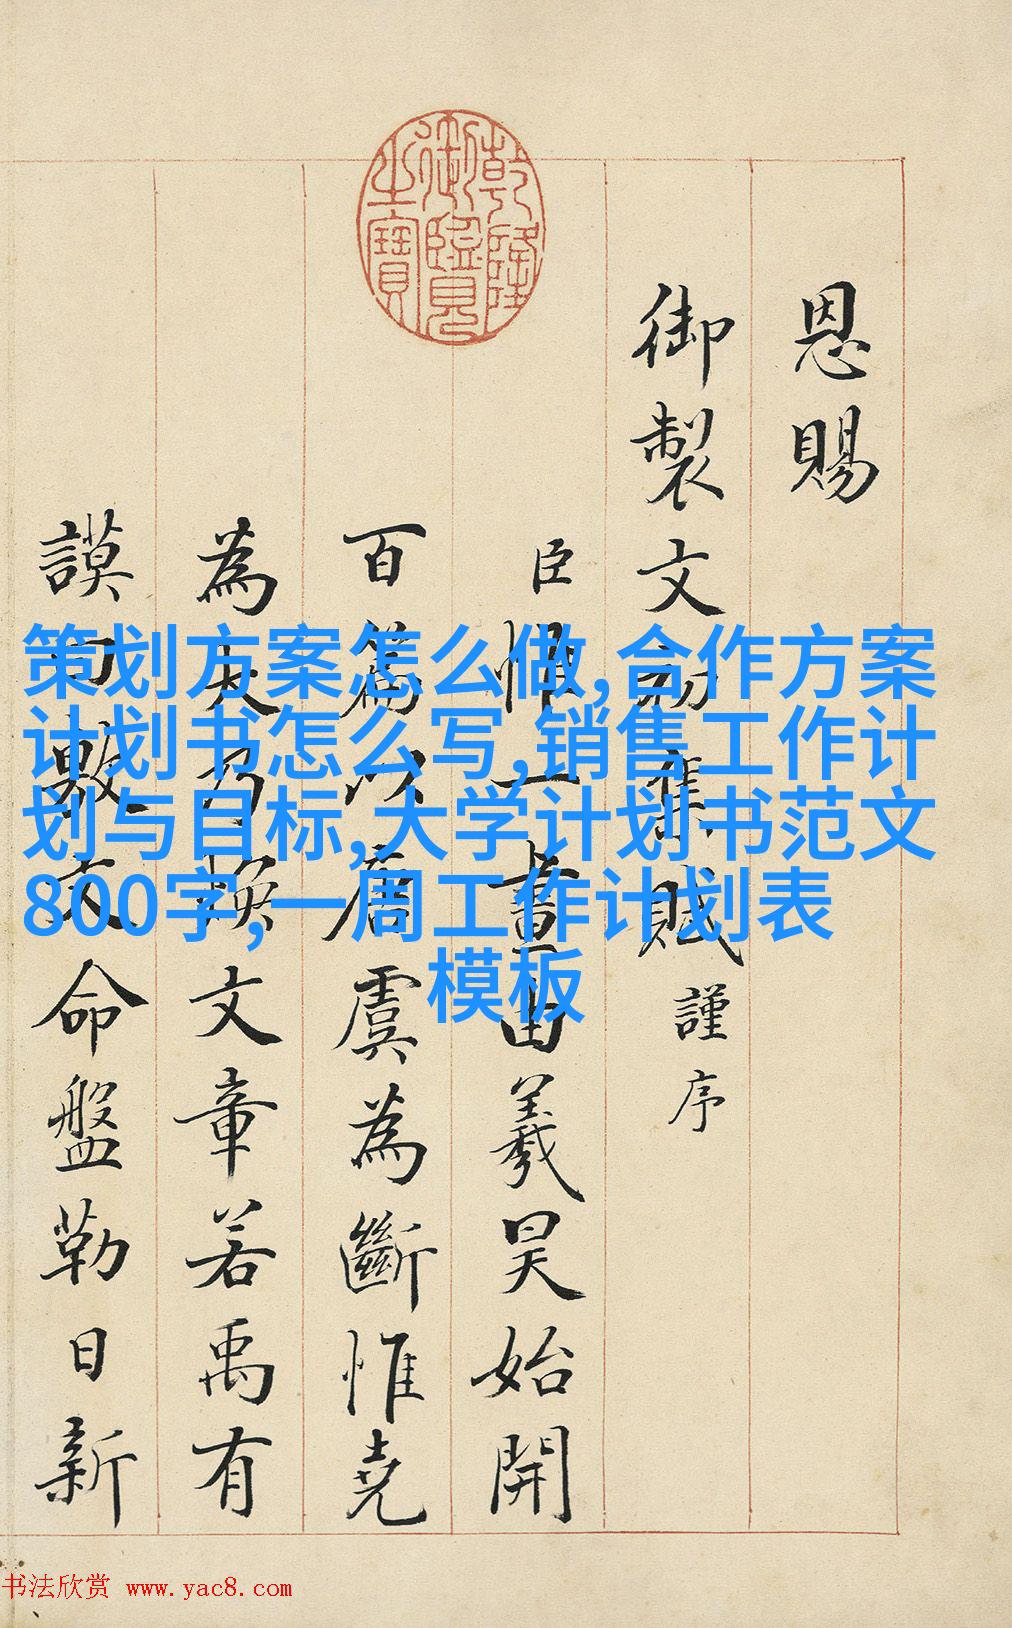 乾隆
御覽
之寶
恩賜
御製文初集賦謹序
臣惟一畫由羲昊始開
百篇以唐虞為斷惟堯
為大乃煥文章若禹有
謨敷文命盤勒日新
策划方案怎么做,合作方案
计划书怎么写,销售工作计
划与目标,大学计划书范文
800字,一周工作计划表
模板
书法欣赏 www.yac8.com